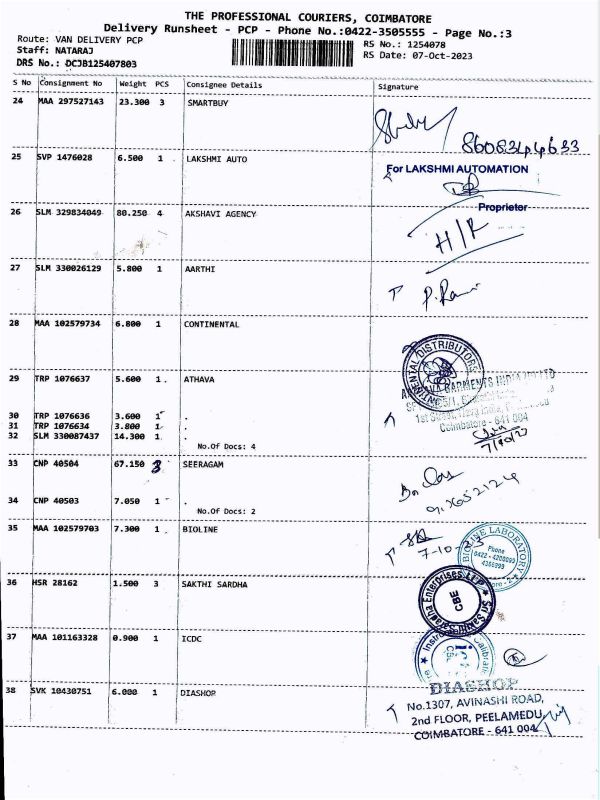 THE PROFESSIONAL COURIERS, COIMBATORE
Delivery Runsheet - PCP - Phone No.:0422-3505555 - Page No.:3
Route: VAN DELIVERY PCP
RS No.: 1254078
Staff: NATARAJ
RS Date: 07-Oct-2023
DRS No.: DCJB125407803
S No Consignment No Weight PCS Consignee Details Signature
24 MAA 297527143 23.300 3 SMARTBUY
8608344633
25 SVP 1476028 6.500 1 LAKSHMI AUTO
For LAKSHMI AUTOMATION
Proprietor
26 SLM 329834049 80.250 4 AKSHAVI AGENCY
H/R
27 SLM 330026129 5.800 1 AARTHI
28 MAA 102579734 6.800 1 CONTINENTAL
CONTINENTAL DISTRIBUTORS
29 TRP 1076637 5.600 1 . ATHAVA
GARMENTS INDIA
Coimbatore - 641 004
7/10/23
30 TRP 1076636 3.600 1 .
31 TRP 1076634 3.800 1 .
32 SLM 330087437 14.300 1 .
No.Of Docs: 4
33 CNP 40504 67.150 3 SEERAGAM
34 CNP 40503 7.050 1 .
No.Of Docs: 2
35 MAA 102579703 7.300 1 BIOLINE
7-10-23
BIOLINE LABORATORY
Phone
0422 - 4208099
4366999
36 HSR 28162 1.500 3 SAKTHI SARDHA
Sri Sakthi Saradha Enterprises LLP
CBE
37 MAA 101163328 0.900 1 ICDC
38 SVK 10430751 6.000 1 DIASHOP
DIASHOP
No.1307, AVINASHI ROAD,
2nd FLOOR, PEELAMEDU,
COIMBATORE - 641 004